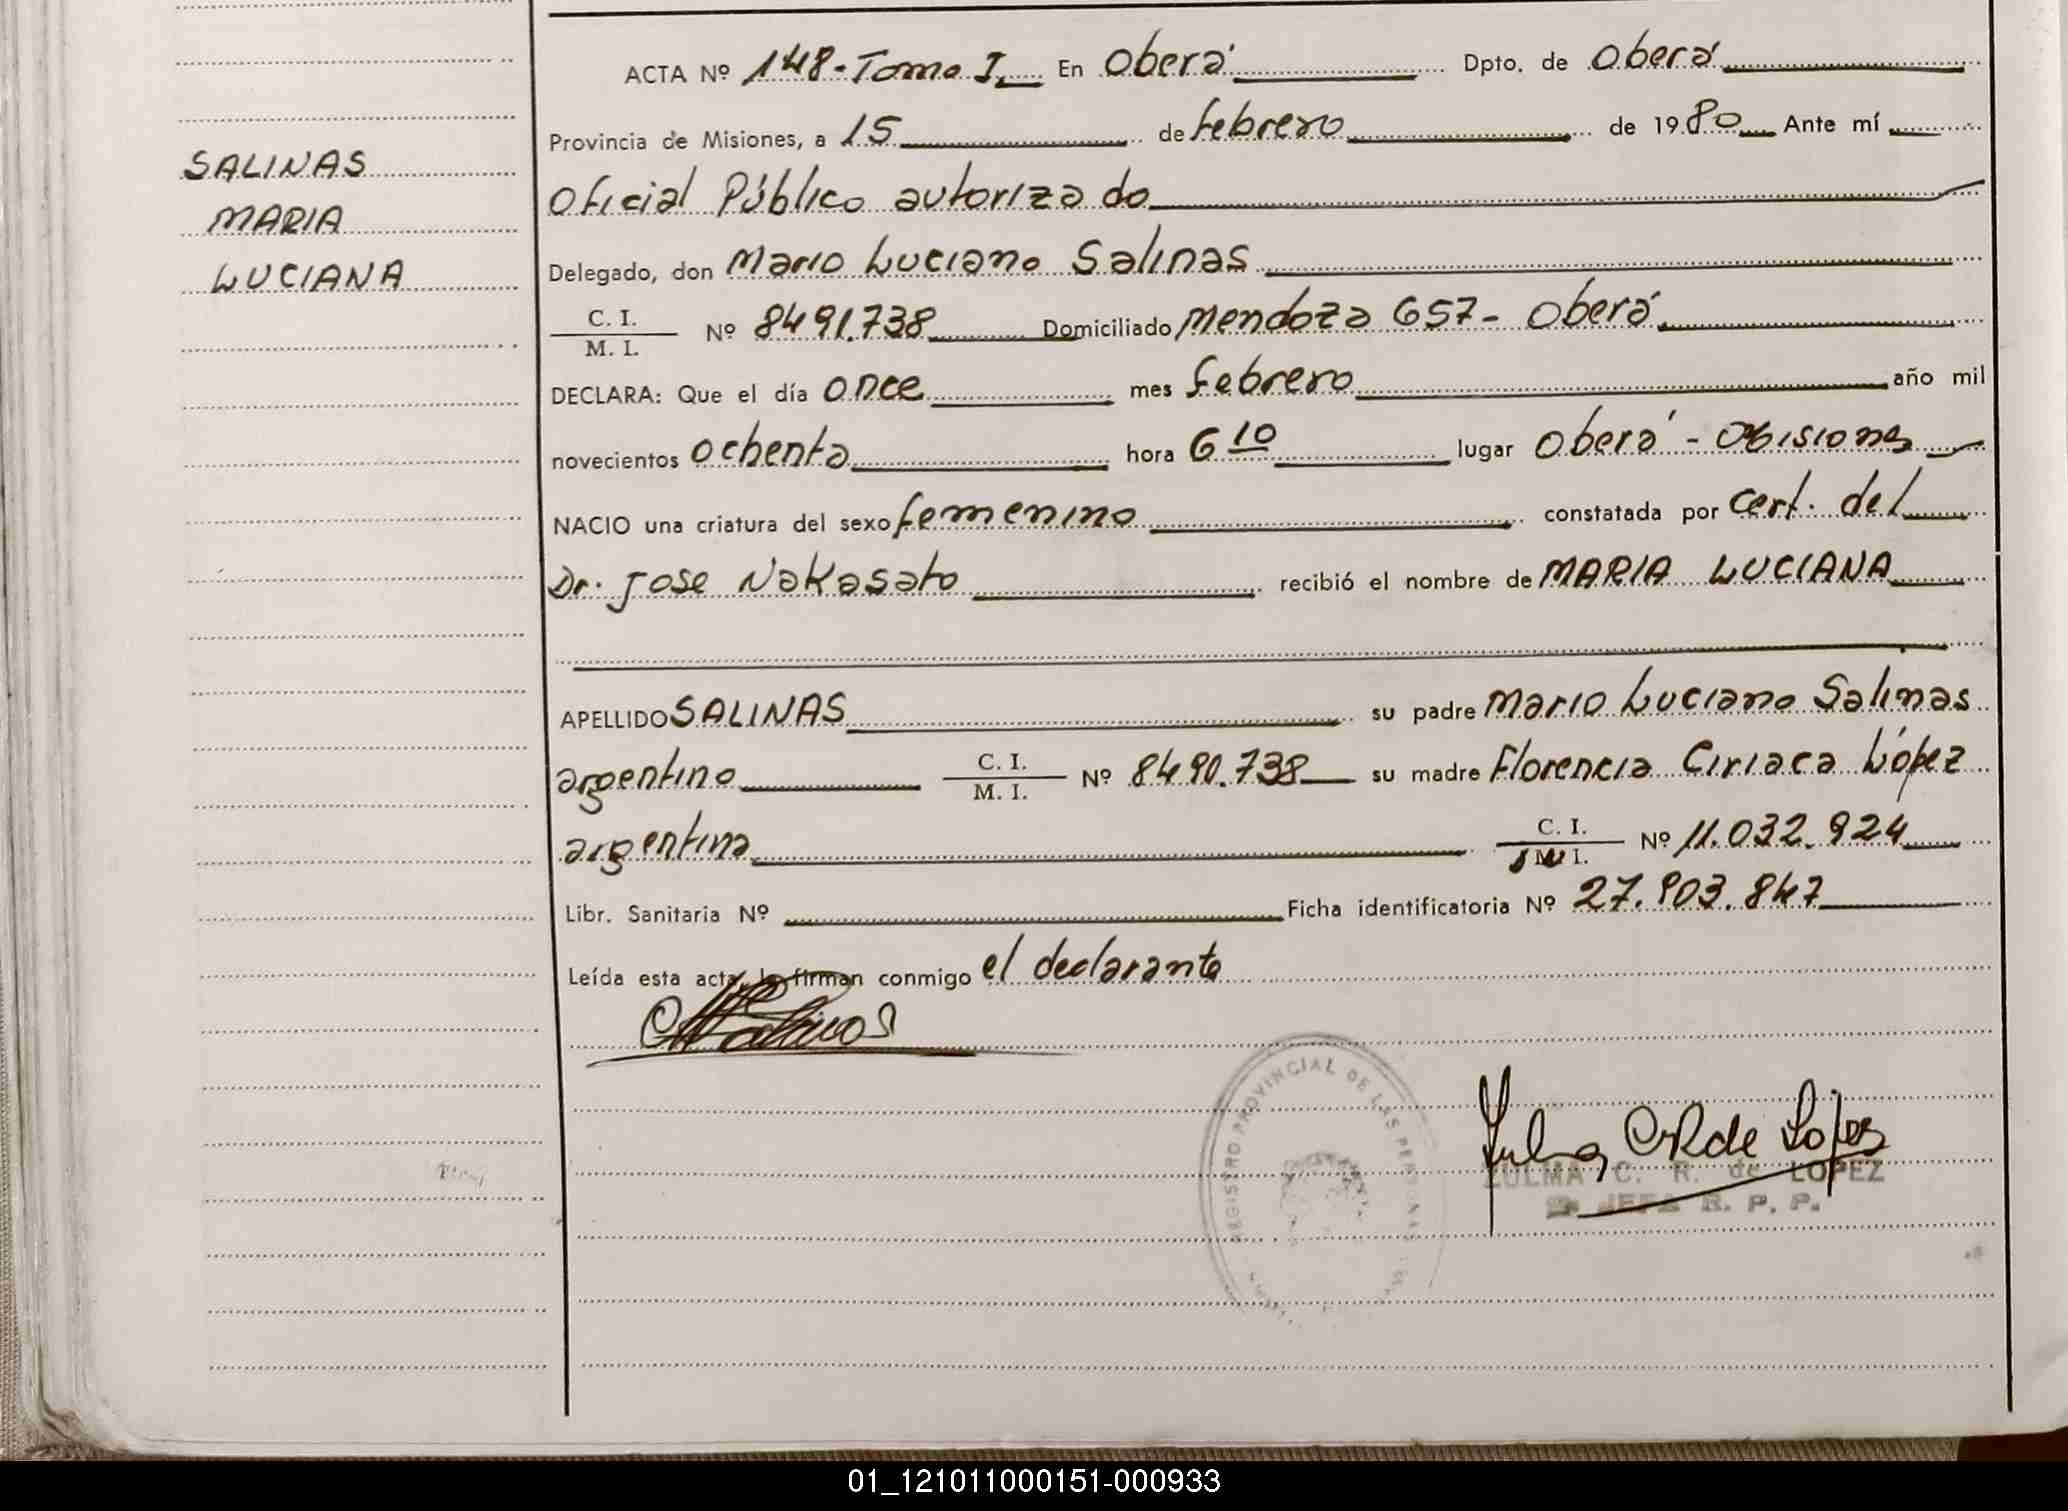 SALINAS
MARIA
LUCIANA
ACTA Nº 148-Tomo I. En Oberá Dpto. de Oberá
Provincia de Misiones, a 15 de febrero de 1980 Ante mí
Oficial Público autorizado
Delegado, don Mario Luciano Salinas
C. I.
M. I. Nº 8491.738 Domiciliado Mendoza 657- Oberá
DECLARA: Que el día once mes febrero año mil
novecientos ochenta hora 6 10 lugar Oberá - Misiones
NACIO una criatura del sexo femenino constatada por cert. del
Dr. Jose Nakasato recibió el nombre de MARIA LUCIANA
APELLIDO SALINAS su padre Mario Luciano Salinas
argentino C. I. M. I. Nº 8490.738 su madre Florencia Ciriaca López
argentina C. I. M. I. Nº 11.032.924
Libr. Sanitaria Nº Ficha identificatoria Nº 27.903.847
Leída esta acta, la firman conmigo el declarante
Salinas
REGISTRO PROVINCIAL DE LAS PERSONAS
Zulma C R de Lopez
ZULMA C. R. de LOPEZ
JEFA R. P. P.
01_121011000151-000933